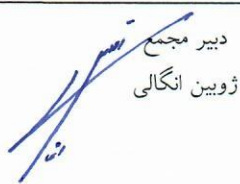 دبیر مجمع
ژوبین انگالی